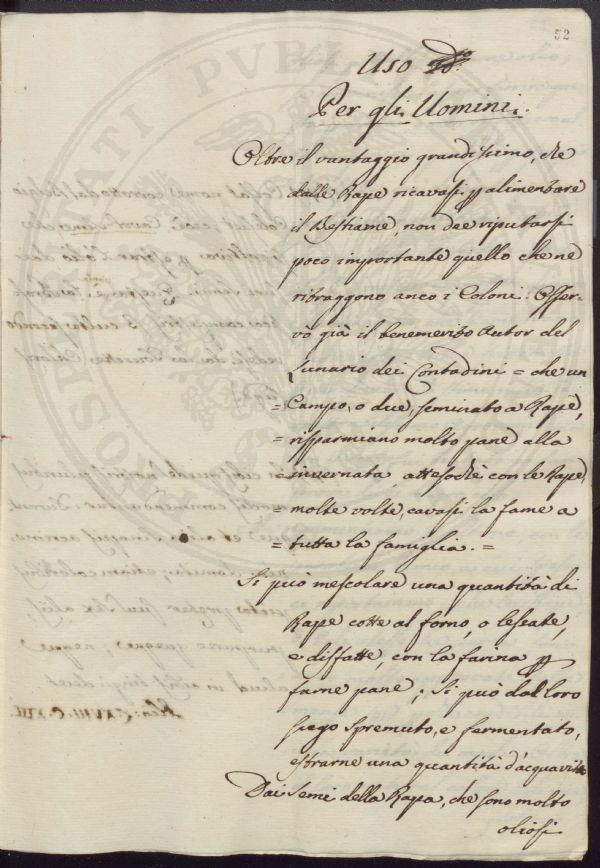 52
Uso
Per gli Uomini.
Oltre il vantaggio grandissimo, che
dalle Rape ricavasi p alimentare
il Bestiame, non dee riputarsi
poco importante quello che ne
ritraggono anco i Coloni: Osser-
vò già il benemerito Autor del
Lunario dei Contadini = che un
= Campo, o due, seminato a Rape,
= risparmiano molto pane alla
= invernata attesochè con le Rape,
= molte volte, cavasi la fame a
= tutta la famiglia. =
Si può mescolare una quantità di
Rape cotte al forno, o lessate,
e disfatte, con la farina p
farne pane; Si può dal loro
sugo spremuto, e fermentato,
estrarne una quantità d'acquavite
Dai semi della Rapa, che sono molto
oliosi